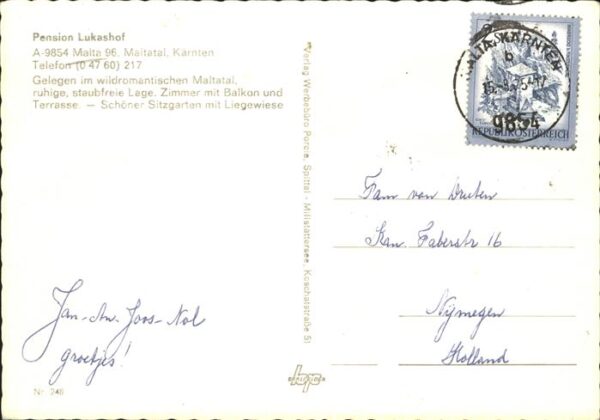 Pension Lukashof
A-9854 Malta 96. Maltatal, Kärnten
Telefon (0 47 60) 217
Gelegen im wildromantischen Maltatal,
ruhige, staubfreie Lage. Zimmer mit Balkon und
Terrasse. — Schöner Sitzgarten mit Liegewiese
Jan-An, Joos-Nol
groetjes!
Nr. 246
Verlag Werbebüro Porcia, Spittal - Millstättersee, Koschatstraße 51
MALTA, KÄRNTEN
b
9854
REPUBLIK ÖSTERREICH
Fam van Druten
Kan. Faberstr 16
Nijmegen
Holland